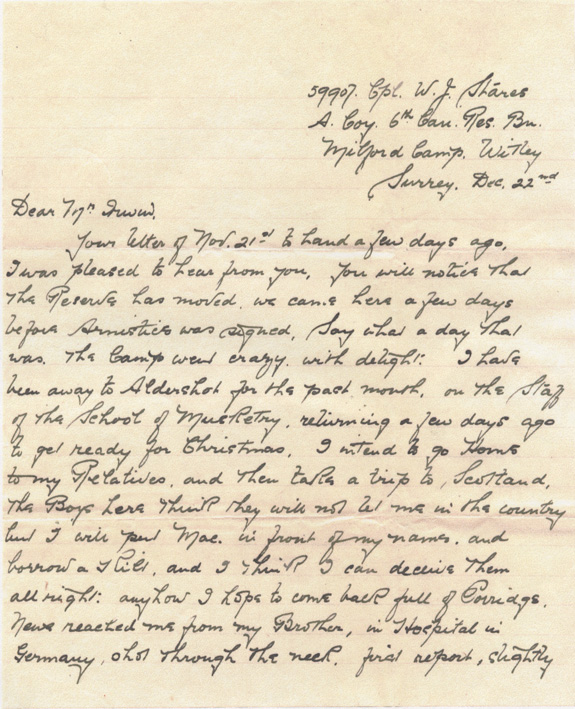 59907. Cpl. W. J. Stares
A. Coy. 6th Can. Res. Bn.
Milford Camp. Witley
Surrey. Dec. 22nd
Dear Mr Irwin,
Your letter of Nov. 21st to hand a few days ago,
I was pleased to hear from you, you will notice that
the Reserve has moved, we came here a few days
before Armistice was signed, Say what a day that
was. the Camp went crazy. with delight: I have
been away to Aldershot for the past month, on the Staff
of the School of Musketry, returning a few days ago
to get ready for Christmas, I intend to go Home
to my Relatives, and then take a trip to, Scotland,
the Boys here think they will not let me in the country
but I will put Mac. in front of my names, and
borrow a Kilt, and I think I can deceive them
all right: anyhow I hope to come back full of Porridge.
News reached me from my Brother, in Hospital in
Germany, shot through the neck. first report, slightly